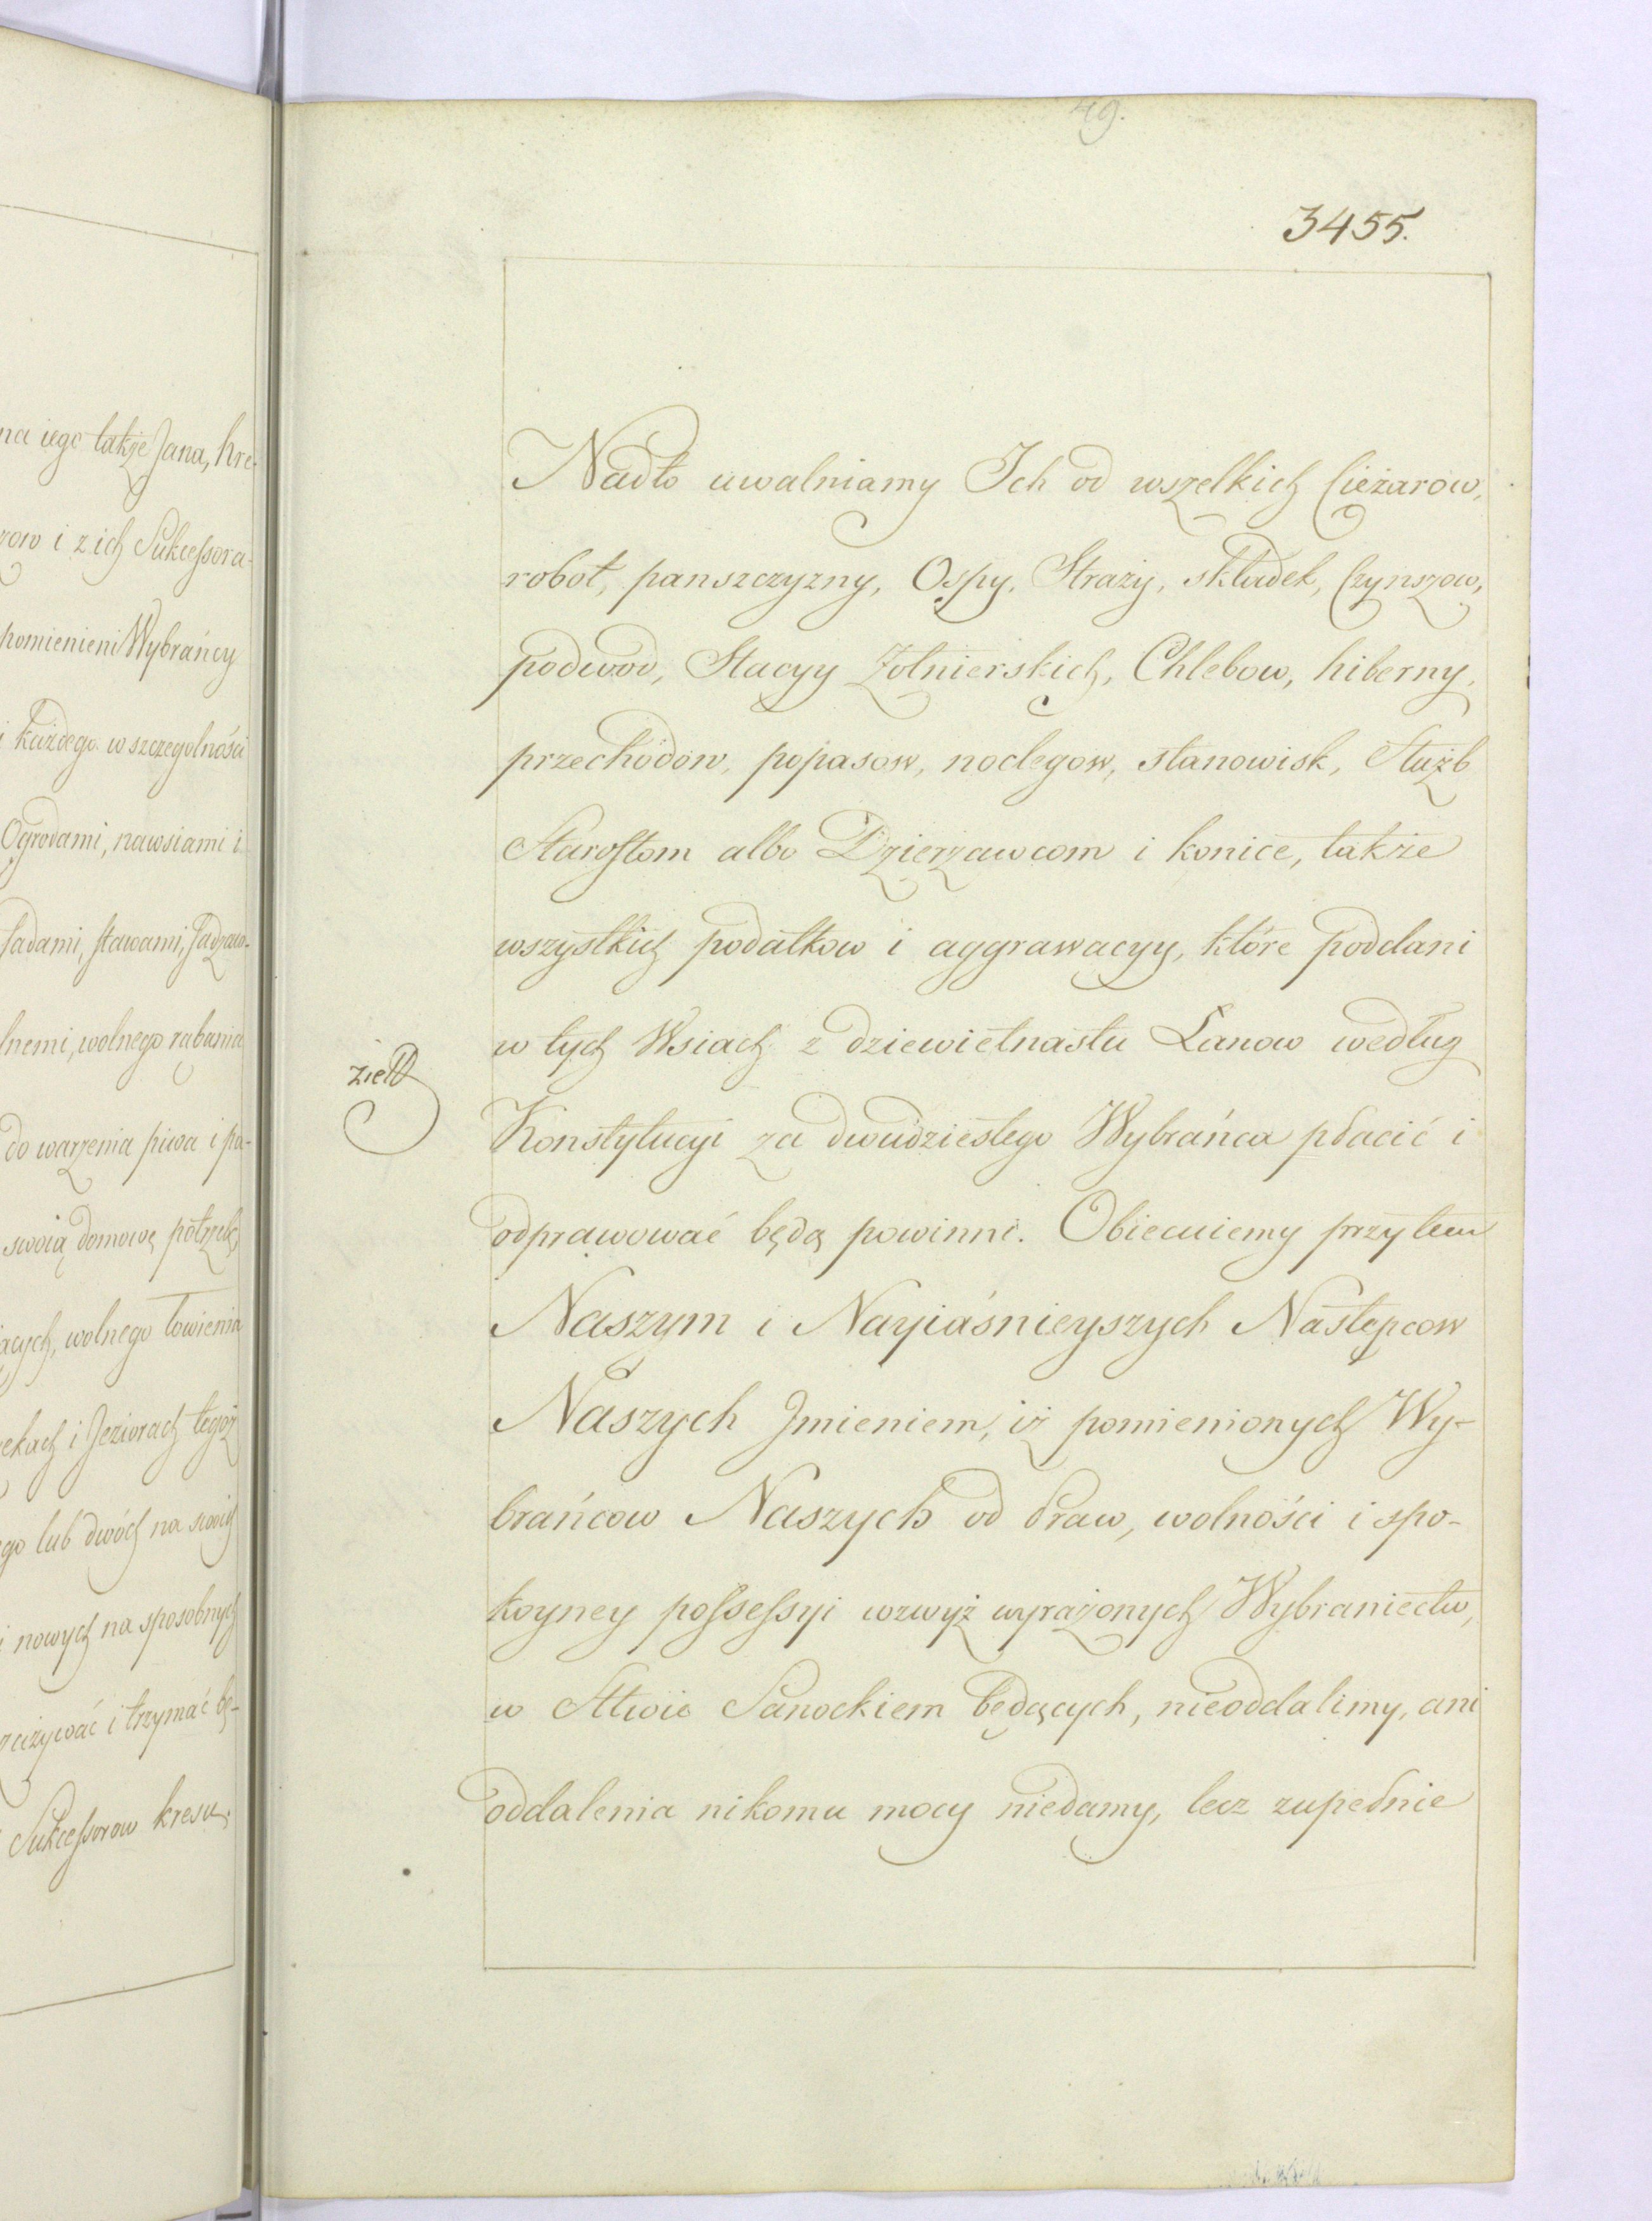 49.
3455.
Nadto uwalniamy Ich od wszelkich Cieżarow,
robot, panszczyzny, Ospy, Straży, składek, Czynszow,
podwod, Stacyy Zołnierskich, Chlebow, hiberny,
przechodow, popasow, noclegow, stanowisk, Służb
Starostom albo Dzierzawcom i konice, także
wszystkich podatkow i aggrawacyy, które poddani
w tych Wsiach z dziewietnastu Łanow według
Konstytucyi za dwudziestego Wybrańca płacić i
odprawować będą powinni. Obiecuiemy przytem
Naszym i Nayiaśnieyszych Następcow
Naszych Jmieniem, iż pomienionych Wy-
brańcow Naszych od Praw, wolności i spo-
koyney possessyi wzwyż wyrażonych Wybraniectw,
w Sttwie Sanockiem będących, nieoddalimy, ani
oddalenia nikomu mocy niedamy, lecz zupełnie
na iego także Jana, hre-
row i z ich Sukcessora-
pomienieni Wybrańcy
i każdego w szczegolności
Ogrodami, nawsiami i
sadami, stawami, Sadzaw-
lnemi, wolnego rąbania
do warzenia piwa i pa-
swoią domową potrzebę
iących, wolnego łowienia
ekach i Jeziorach tegoż
go lub dwóch na swoich
i nowych na sposobnych
zażywać i trzymać bę-
Sukcessorow kresu.